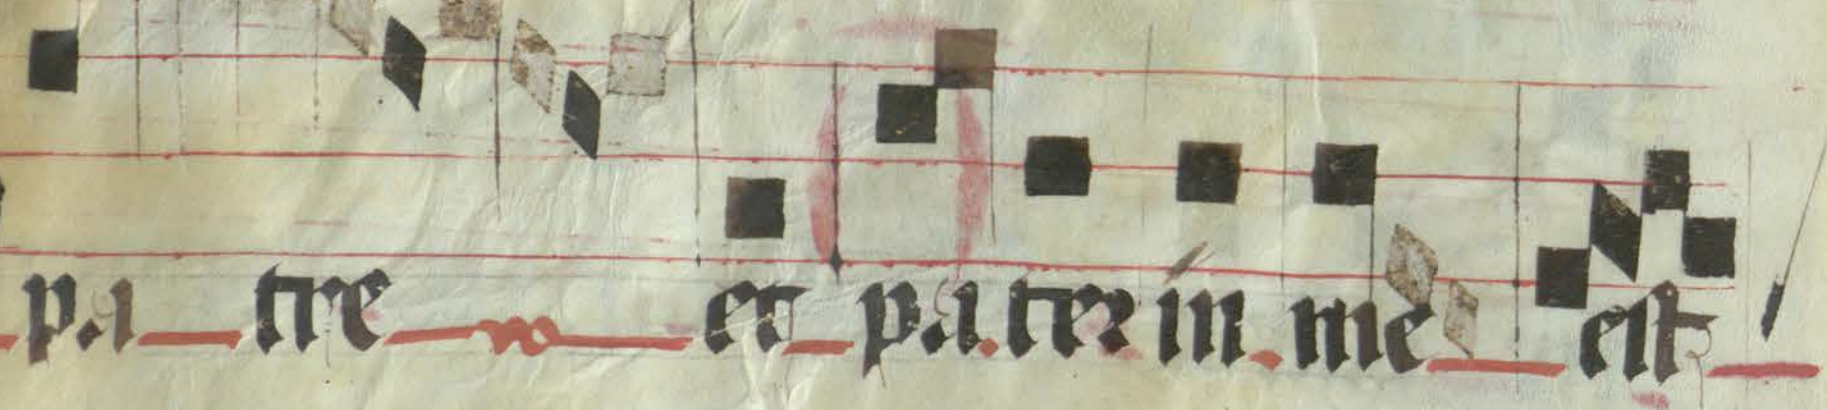 pa tre et pa.ter in. me est